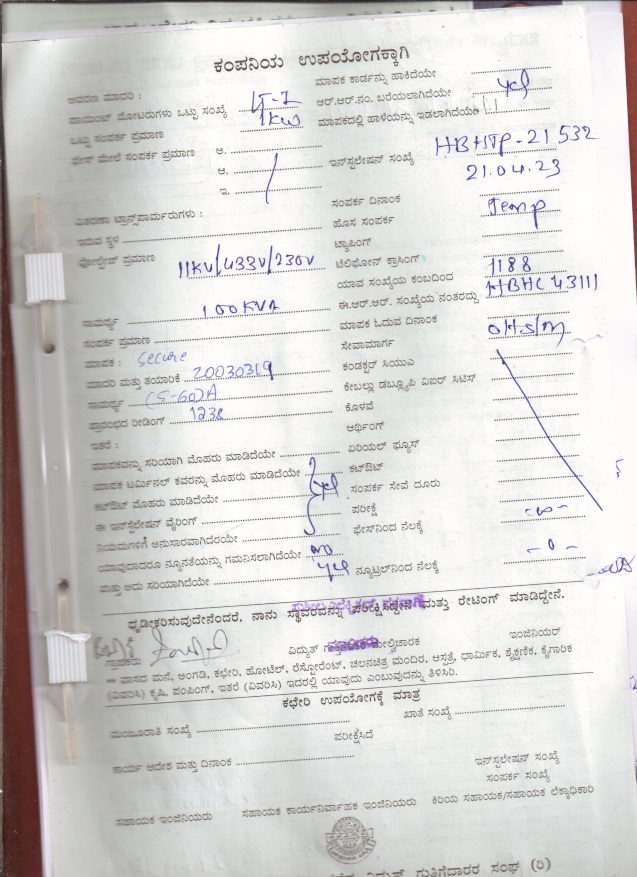 ಕಂಪನಿಯ ಉಪಯೋಗಕ್ಕಾಗಿ
ಆವರಣ ಮಾದರಿ :
ಮಾಪಕ ಕಾರ್ಡನ್ನು ಹಾಕಿದೆಯೇ
ಪಾಯಿಂಟ್ ಮೋಟರುಗಳು ಒಟ್ಟು ಸಂಖ್ಯೆ LT-2
ಆರ್.ಆರ್.ನಂ. ಬರೆಯಲಾಗಿದೆಯೇ yes
ಒಟ್ಟು ಸಂಪರ್ಕ ಪ್ರಮಾಣ 1KW
ಮಾಪಕದಲ್ಲಿ ಹಾಳೆಯನ್ನು ಇಡಲಾಗಿದೆಯೇ
ಫೇಸ್ ಮೇಲೆ ಸಂಪರ್ಕ ಪ್ರಮಾಣ ಅ.
ಇನ್‌ಸ್ಟಲೇಷನ್ ಸಂಖ್ಯೆ HBHTP-21532
ಆ. 21.04.23
ಇ.
ಸಂಪರ್ಕ ದಿನಾಂಕ
ವಿತರಣಾ ಟ್ರಾನ್ಸ್‌ಫಾರ್ಮರುಗಳು :
ಹೊಸ ಸಂಪರ್ಕ Temp
ಇರುವ ಸ್ಥಳ
ಟ್ಯಾಪಿಂಗ್
ವೋಲ್ಟೇಜ್ ಪ್ರಮಾಣ 11KV/433V/230V
ಟೆಲಿಫೋನ್ ಕ್ರಾಸಿಂಗ್
ಯಾವ ಸಂಖ್ಯೆಯ ಕಂಬದಿಂದ 1188
ಸಾಮರ್ಥ್ಯ 100KVA
ಈ.ಆರ್.ಆರ್. ಸಂಖ್ಯೆಯ ನಂತರದ್ದು HBHL43111
ಸಂಪರ್ಕ ಪ್ರಮಾಣ
ಮಾಪಕ ಓದುವ ದಿನಾಂಕ
ಮಾಪಕ : secure
ಸೇವಾಮಾರ್ಗ
ಮಾದರಿ ಮತ್ತು ತಯಾರಿಕೆ 20030319
ಕಂಡಕ್ಟರ್ ಸಿಯುಎ
ಸಾಮರ್ಥ್ಯ (5-60)A
ಕೇಬಲ್ಲು ಡಬ್ಲ್ಯೂಪಿ ವಿಐರ್ ಸಿಟಿಸ್
ಪ್ರಾರಂಭದ ರೀಡಿಂಗ್ 1238
ಕೊಳವೆ
ಇತರೆ :
ಅರ್ಥಿಂಗ್
ಮಾಪಕವನ್ನು ಸರಿಯಾಗಿ ಮೊಹರು ಮಾಡಿದೆಯೇ
ಏರಿಯಲ್ ಫ್ಯೂಸ್
ಮಾಪಕ ಟರ್ಮಿನಲ್ ಕವರನ್ನು ಮೊಹರು ಮಾಡಿದೆಯೇ yes
ಕಟ್‌ಔಟ್
ಕಟ್‌ಔಟ್ ಮೊಹರು ಮಾಡಿದೆಯೇ
ಸಂಪರ್ಕ ಸೇವೆ ದೂರು
ಈ ಇನ್‌ಸ್ಟಲೇಷನ್ ವೈರಿಂಗ್
ಪರೀಕ್ಷೆ
ನಿಯಮಗಳಿಗೆ ಅನುಸಾರವಾಗಿದೆರಯೇ
ಫೇಸ್‌ನಿಂದ ನೆಲಕ್ಕೆ -∞-
ಯಾವುದಾದರೂ ನ್ಯೂನತೆಯನ್ನು ಗಮನಿಸಲಾಗಿದೆಯೇ no
ಮತ್ತು ಅದು ಸರಿಯಾಗಿದೆಯೇ yes
ನ್ಯೂಟ್ರಲ್‌ನಿಂದ ನೆಲಕ್ಕೆ -0-
ಧೃಡೀಕರಿಸುವುದೇನೆಂದರೆ. ನಾನು ಸ್ಥಾವರವನ್ನು ಪರೀಕ್ಷಿಸಿದ್ದೇನೆ ಮತ್ತು ರೇಟಿಂಗ್ ಮಾಡಿದ್ದೇನೆ.
ಗ್ರಾಹಕರು ವಿದ್ಯುತ್ ಮೇಲ್ವಿಚಾರಕ ಇಂಜಿನಿಯರ್
** ವಾಸದ ಮನೆ, ಅಂಗಡಿ, ಕಛೇರಿ, ಹೋಟೆಲ್, ರೆಸ್ಟೋರೆಂಟ್, ಚಲನಚಿತ್ರ ಮಂದಿರ, ಆಸ್ಪತ್ರೆ, ಧಾರ್ಮಿಕ, ಶೈಕ್ಷಣಿಕ, ಕೈಗಾರಿಕ
(ವಿವರಿಸಿ) ಕೃಷಿ, ಪಂಪಿಂಗ್, ಇತರೆ (ವಿವರಿಸಿ) ಇದರಲ್ಲಿ ಯಾವುದು ಎಂಬುವುದನ್ನು ತಿಳಿಸಿರಿ.
ಕಛೇರಿ ಉಪಯೋಗಕ್ಕೆ ಮಾತ್ರ
ಮಂಜೂರಾತಿ ಸಂಖ್ಯೆ ಖಾತೆ ಸಂಖ್ಯೆ
ಪರೀಕ್ಷಿಸಿದೆ
ಕಾರ್ಯ ಆದೇಶ ಮತ್ತು ದಿನಾಂಕ ಇನ್‌ಸ್ಟಲೇಷನ್ ಸಂಖ್ಯೆ
ಸಂಪರ್ಕ ಸಂಖ್ಯೆ
ಸಹಾಯಕ ಇಂಜಿನಿಯರು ಸಹಾಯಕ ಕಾರ್ಯನಿರ್ವಾಹಕ ಇಂಜಿನಿಯರು ಕಿರಿಯ ಸಹಾಯಕ/ಸಹಾಯಕ ಲೆಕ್ಕಾಧಿಕಾರಿ
ವಿದ್ಯುತ್ ಗುತ್ತಿಗೆದಾರರ ಸಂಘ (ರಿ)